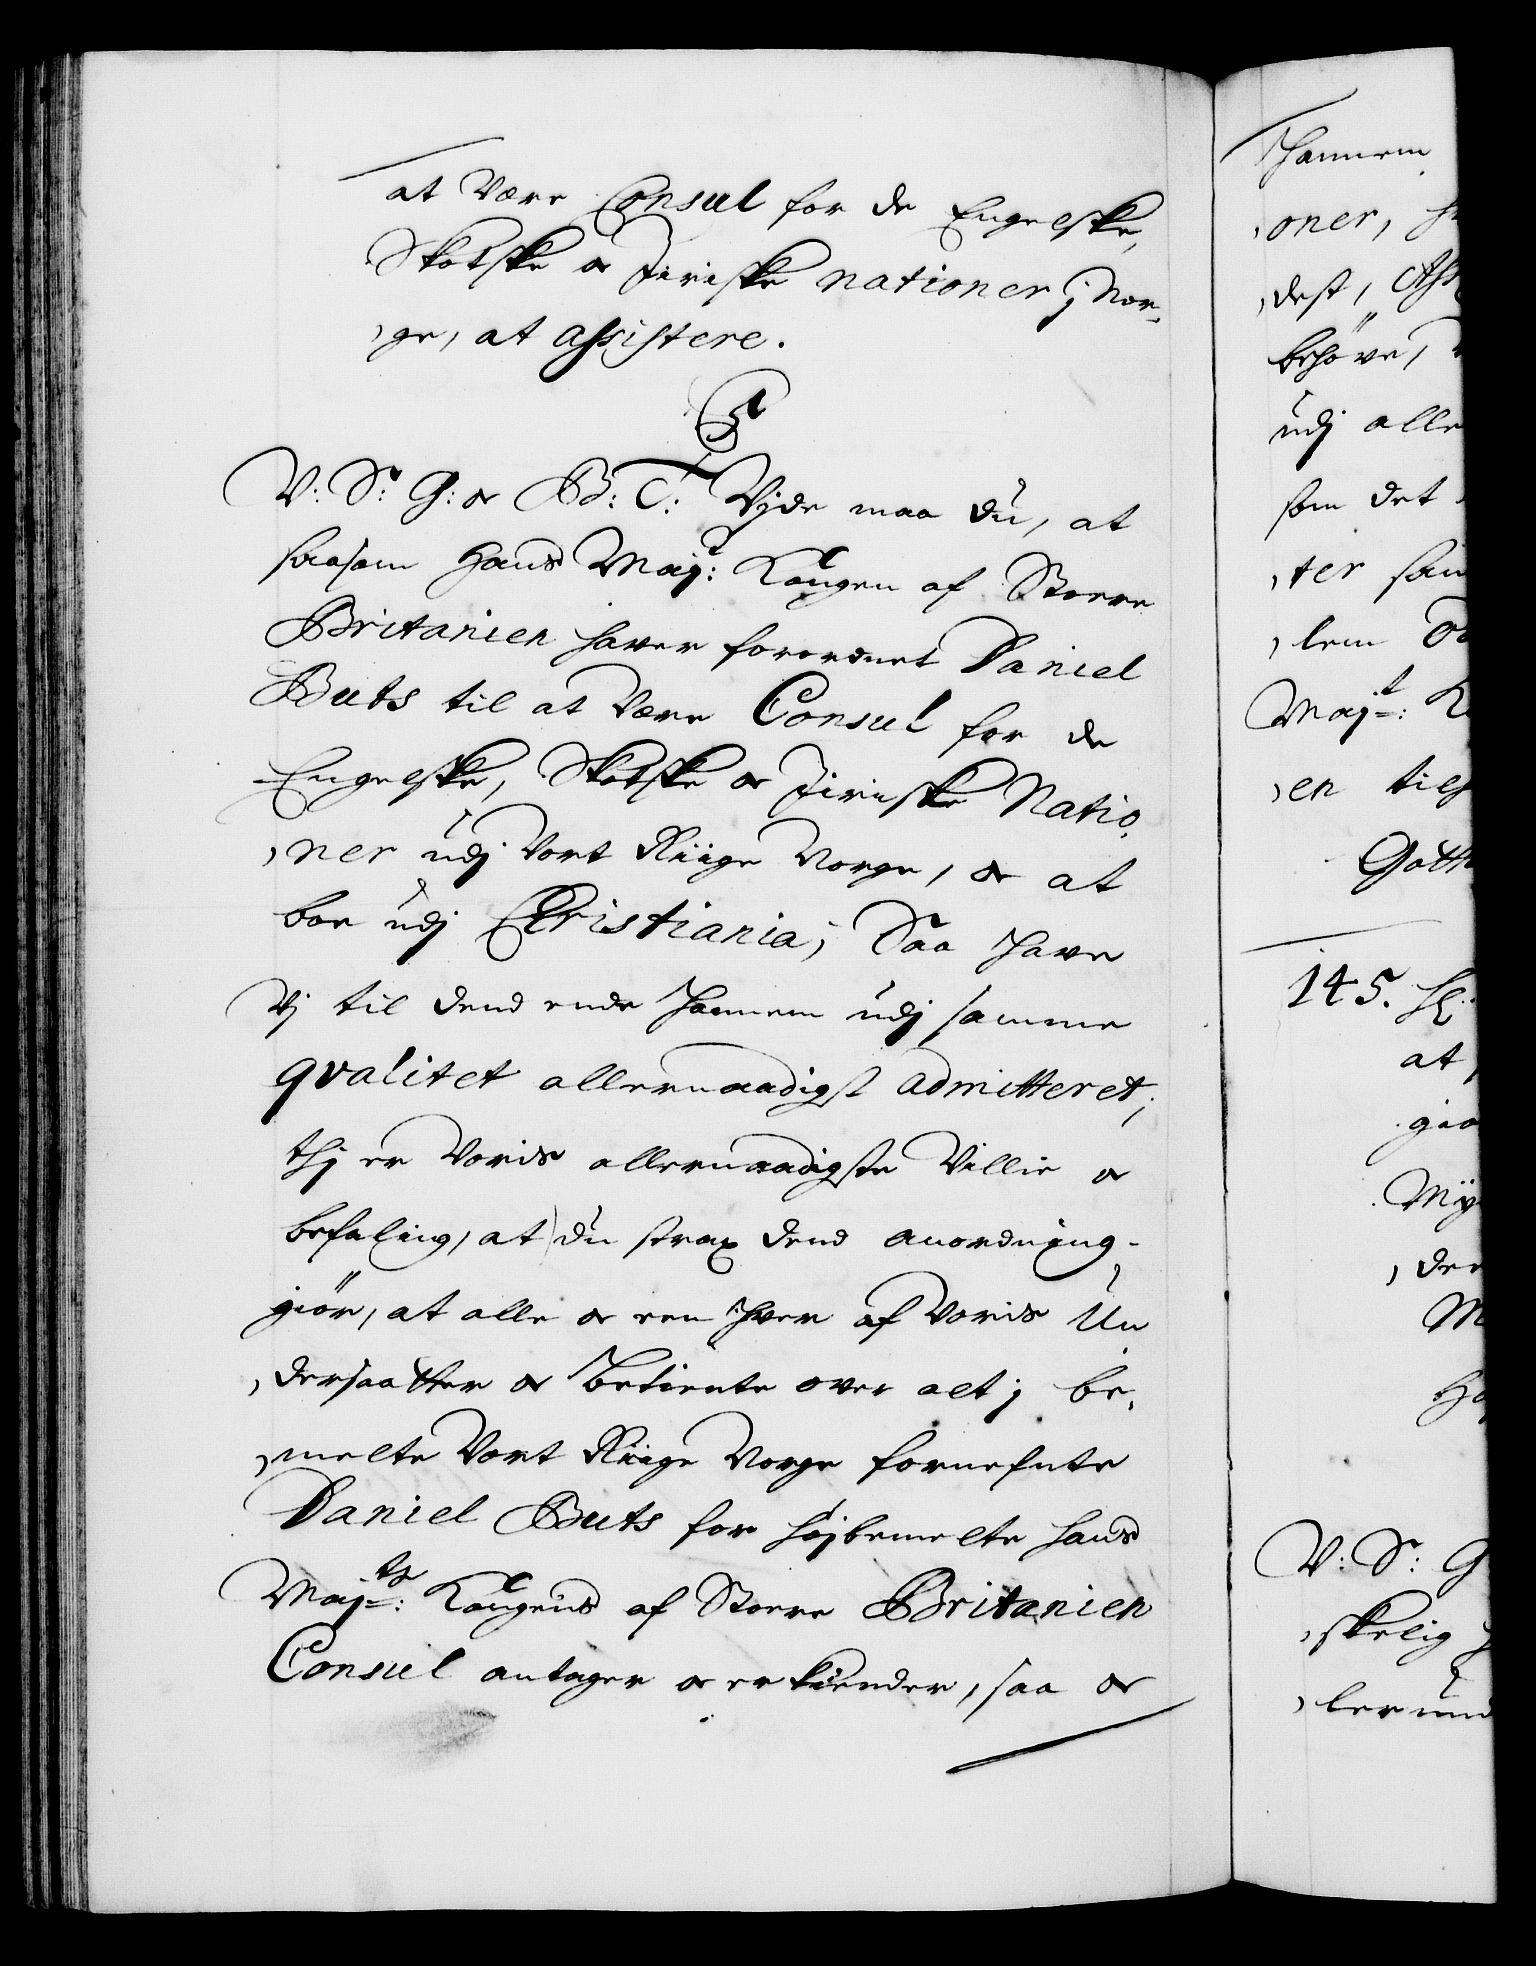 at Være Consul for de Engelske,
Skotske og Jiriske nationer j Nor-
ge, at assistere.
V: S: G: og B: T: Vjde maa du, at
saasom Hans Maj:t Kongen af Storre
Britanien haver forordnet Daniel
Buts til at Være Consul for de
Engelske, Skotske og Jiriske Natio,
,ner udj Vort Riige Norge, og at
boe udj Christiania; Saa have
Vj til dend ende hannem udj samme
qvalitet allernaadigst admitteret;
thj er Voris allernaadigste Villie og
befaling, at du strax dend anordning
giör, at alle og een hver af Voris Un
,dersaatter og betiente over alt j be,
,melte Vort Riige Norge fornefnte
Daniel Buts for højbemelte hans
Maj:ts Kongens af Storre Britanien
Consul antager og erkiender, saa og
hannem
,oner,
,dest,
behöve,
udj alle
som det
,ter
,lem
Maj:t
,en
145.
at
V: S: G
,skelig